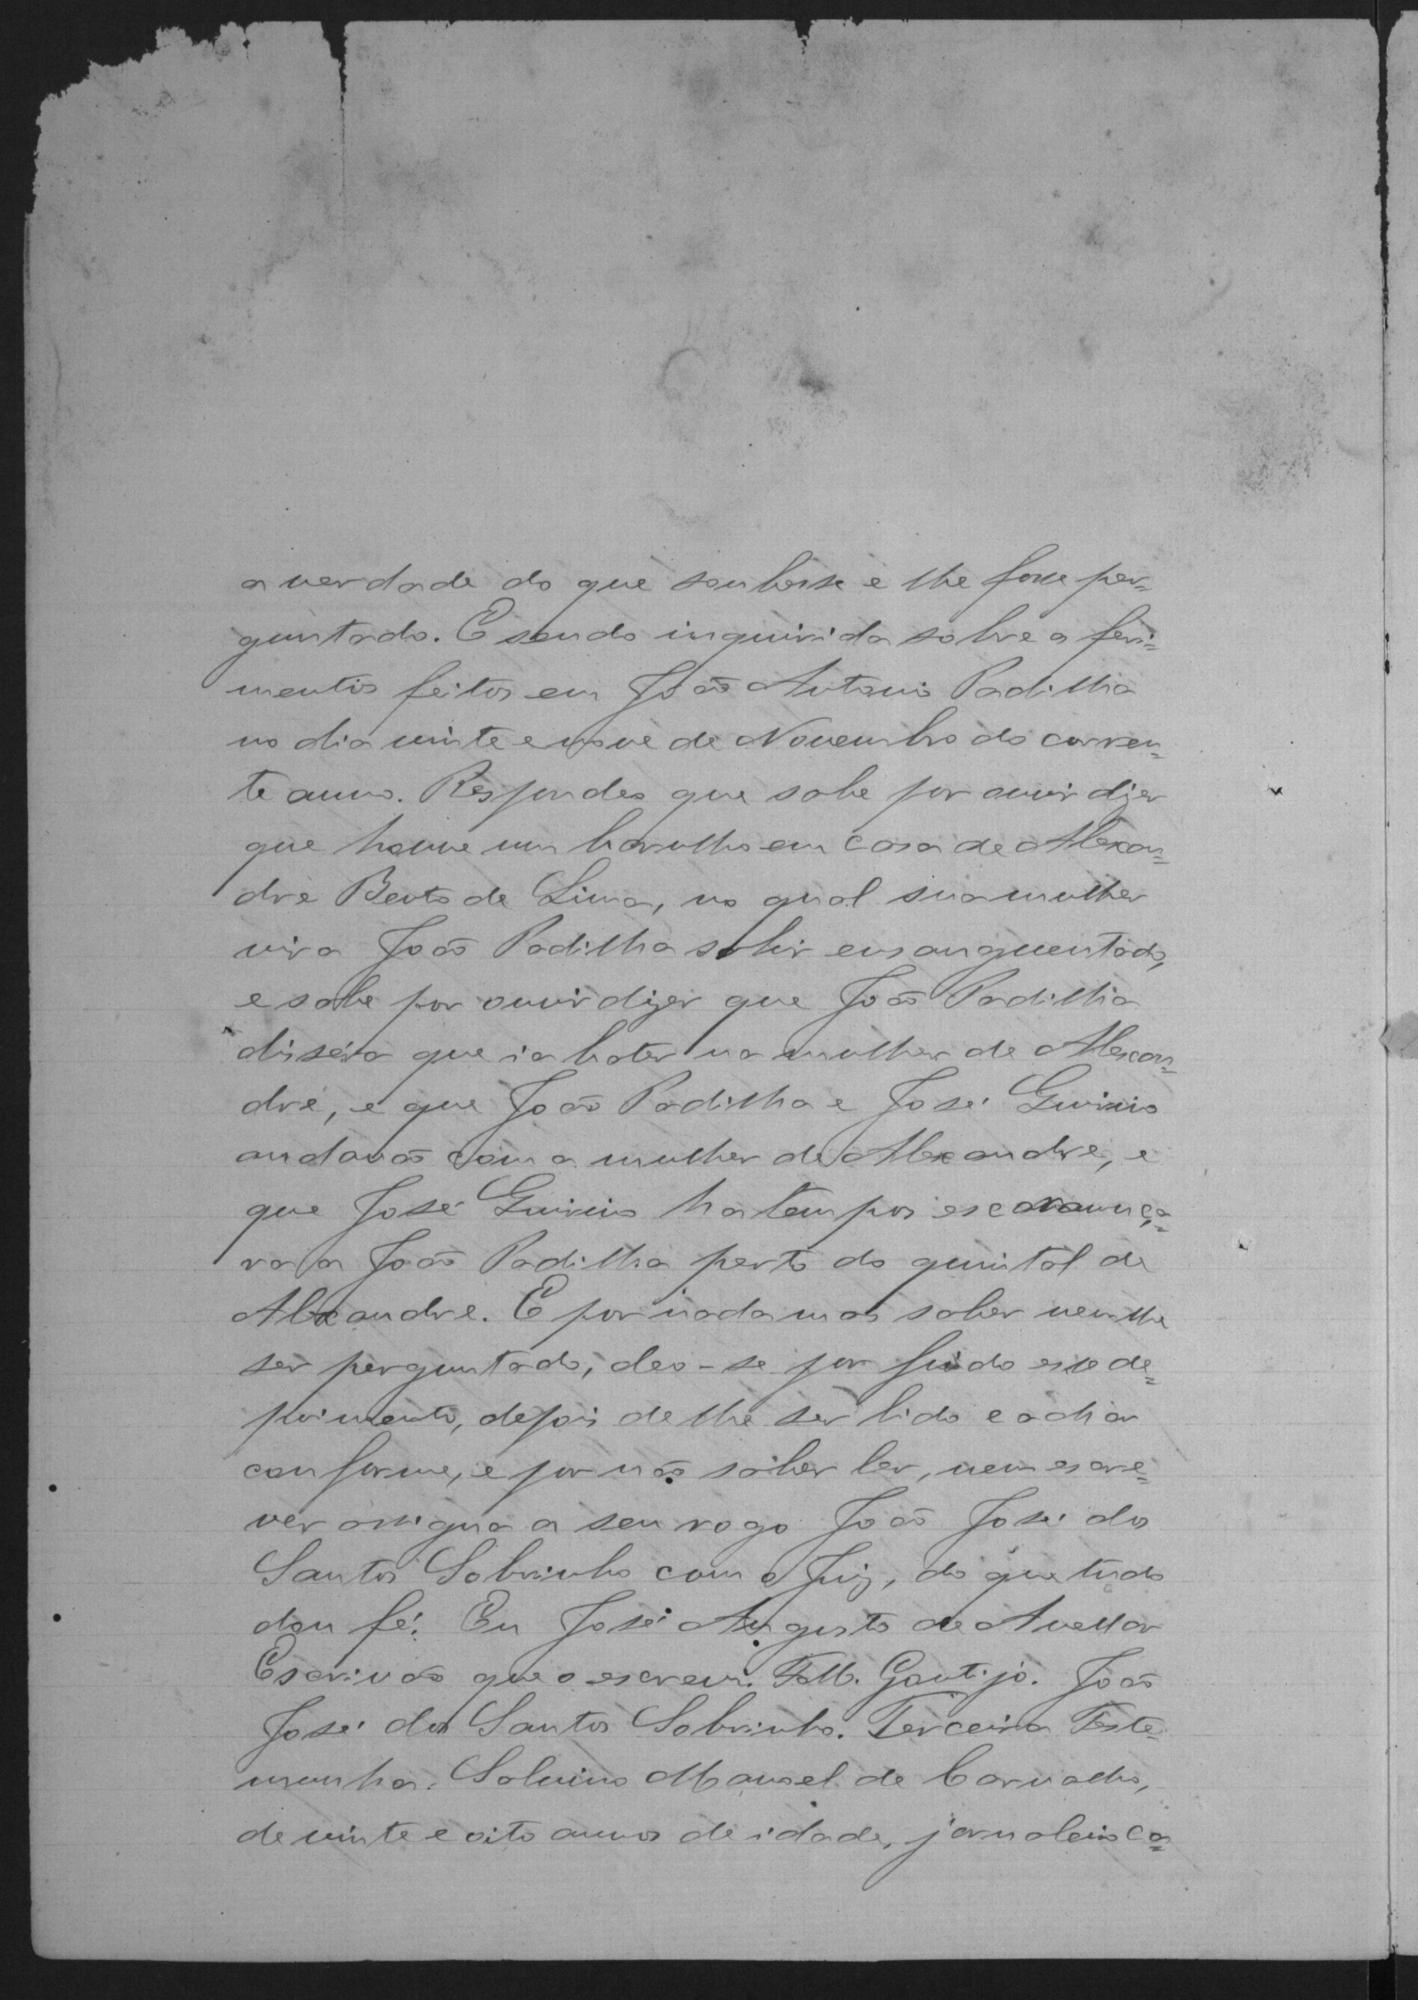 a verdade do que soubesse e lhe fosse per=
guntado. E sendo inquirida sobre os feri=
mentos feitos em João Antonio Padilha
no dia vinte e nove de Novembro do corren=
te anno. Respondeo que sabe por ouvir dizer
que houve um barulho em casa de Alexan=
dre Bento de Lima, no qual sua mulher
vira João Padilha sahir ensanguentado,
e sabe por ouvir dizer que João Padilha
dissera que ia bater na mulher de Alexan=
dre, e que João Padilha e José Quirino
andavão com a mulher de Alexandre, e
que José Quirino ha tempos escaramuça=
va a João Padilha perto do quintal de
Alexandre. E por nada mas saber nem lhe
ser perguntado, deo-se por findo este de=
poimento, depois de lhe ser lido e achar
conforme, e por não saber ler, nem escre=
ver assigna a seu rogo João José dos
Santos Sobrinho com o Juiz, do que tudo
dou fé. Eu José Augusto de Avellar
Escrivão que o escrevi. Gontijo. João
José dos Santos Sobrinho. Terceira Teste=
munha. Salvino Manoel de Carvalho,
de vinte e oito annos de idade, jornaleiro ca=